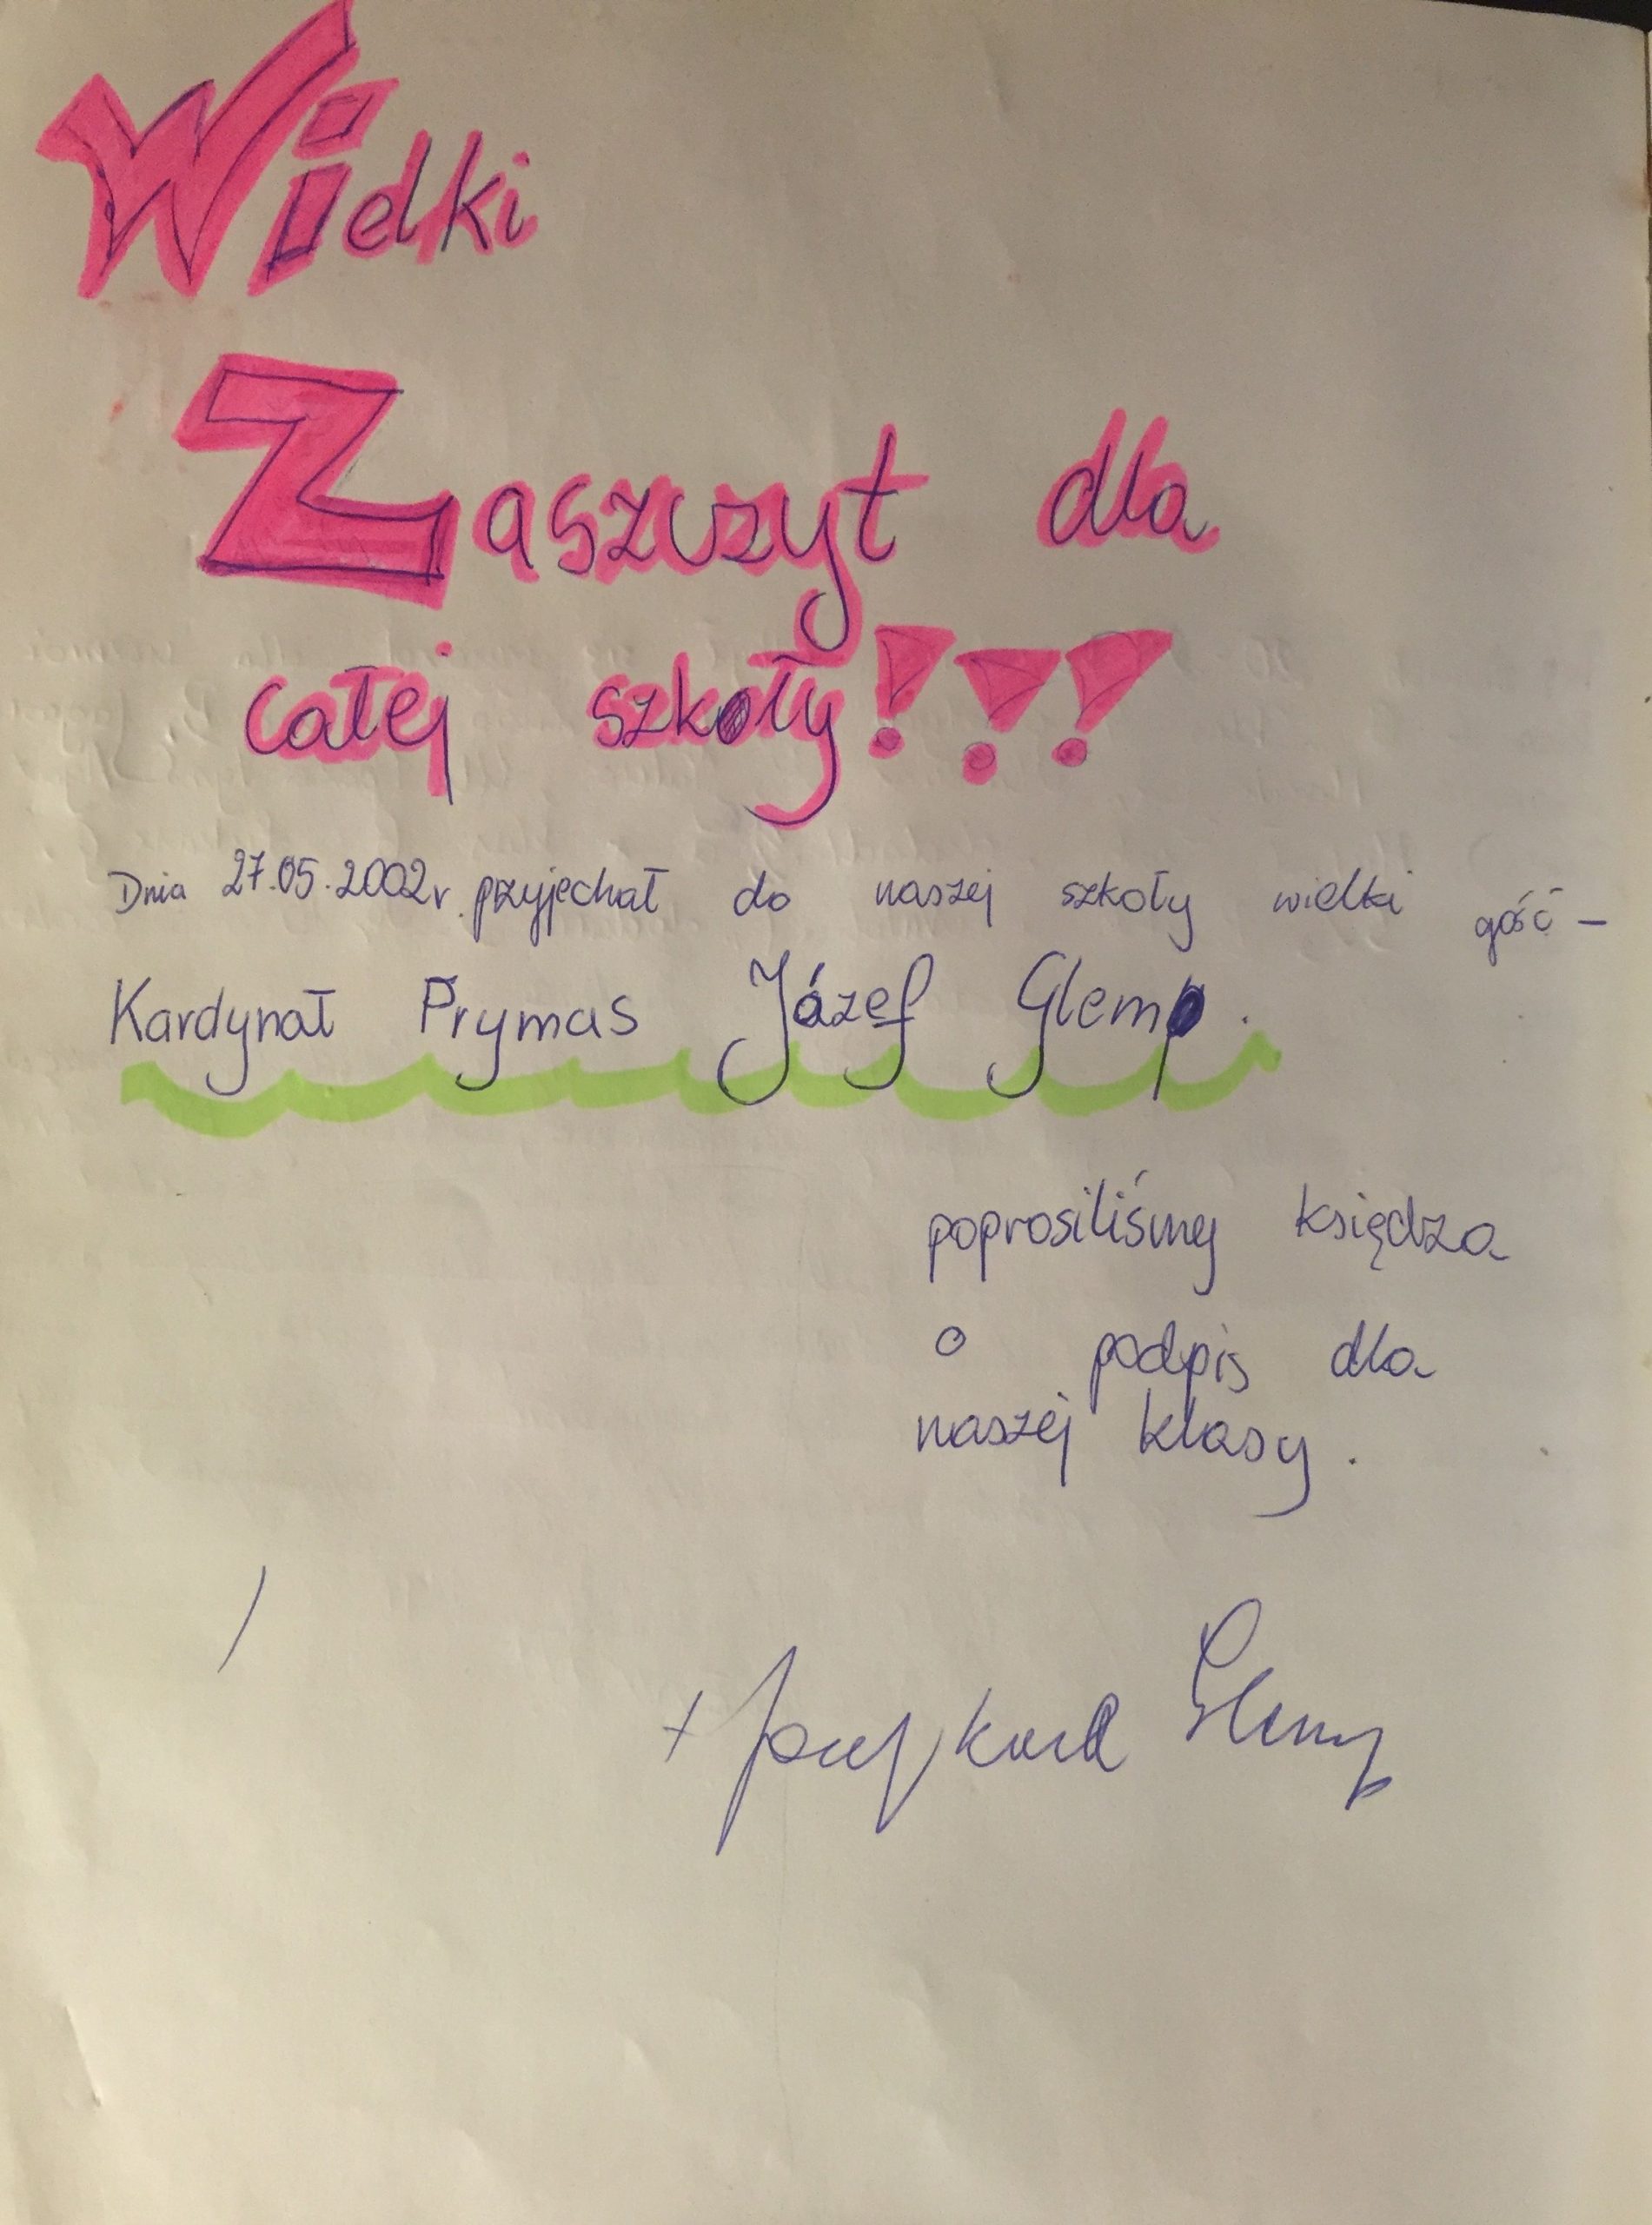 Wielki
Zaszczyt dla
całej szkoły!!!
Dnia 27.05.2002r. przyjechał do naszej szkoły wielki gość –
Kardynał Prymas Józef Glemp.
poprosiliśmy księdza
o podpis dla
naszej klasy.
+ Józef kard Glemp